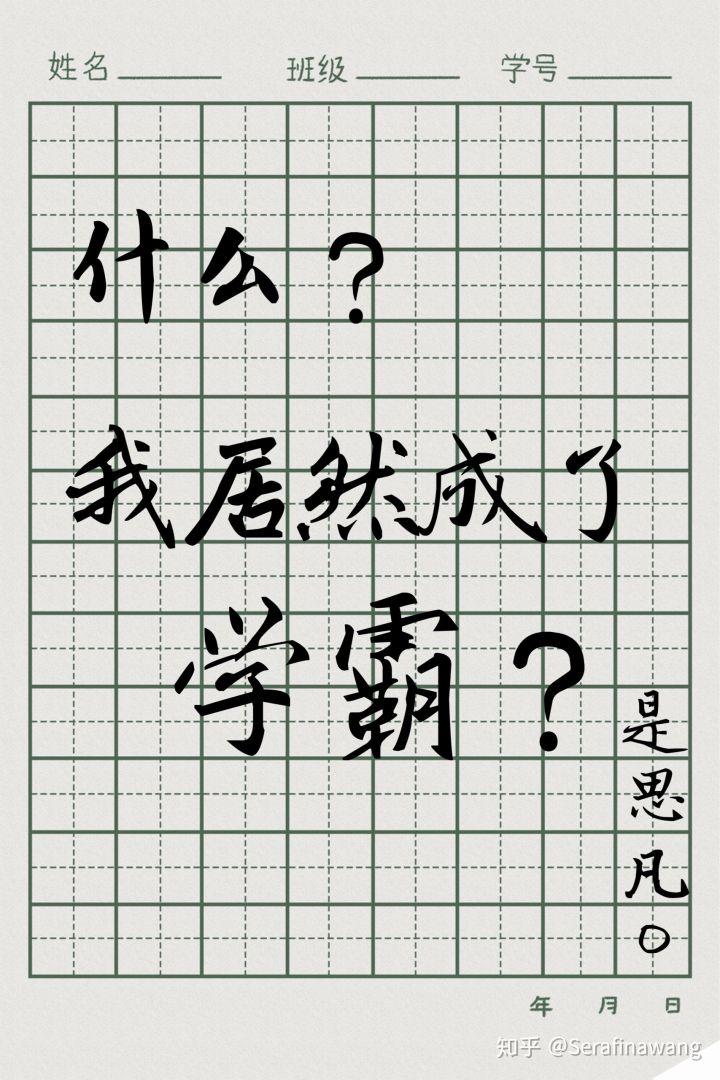 姓名 班级 学号
什么？
我居然成了
学霸？
是思凡〇
年 月 日
知乎 @Serafinawang